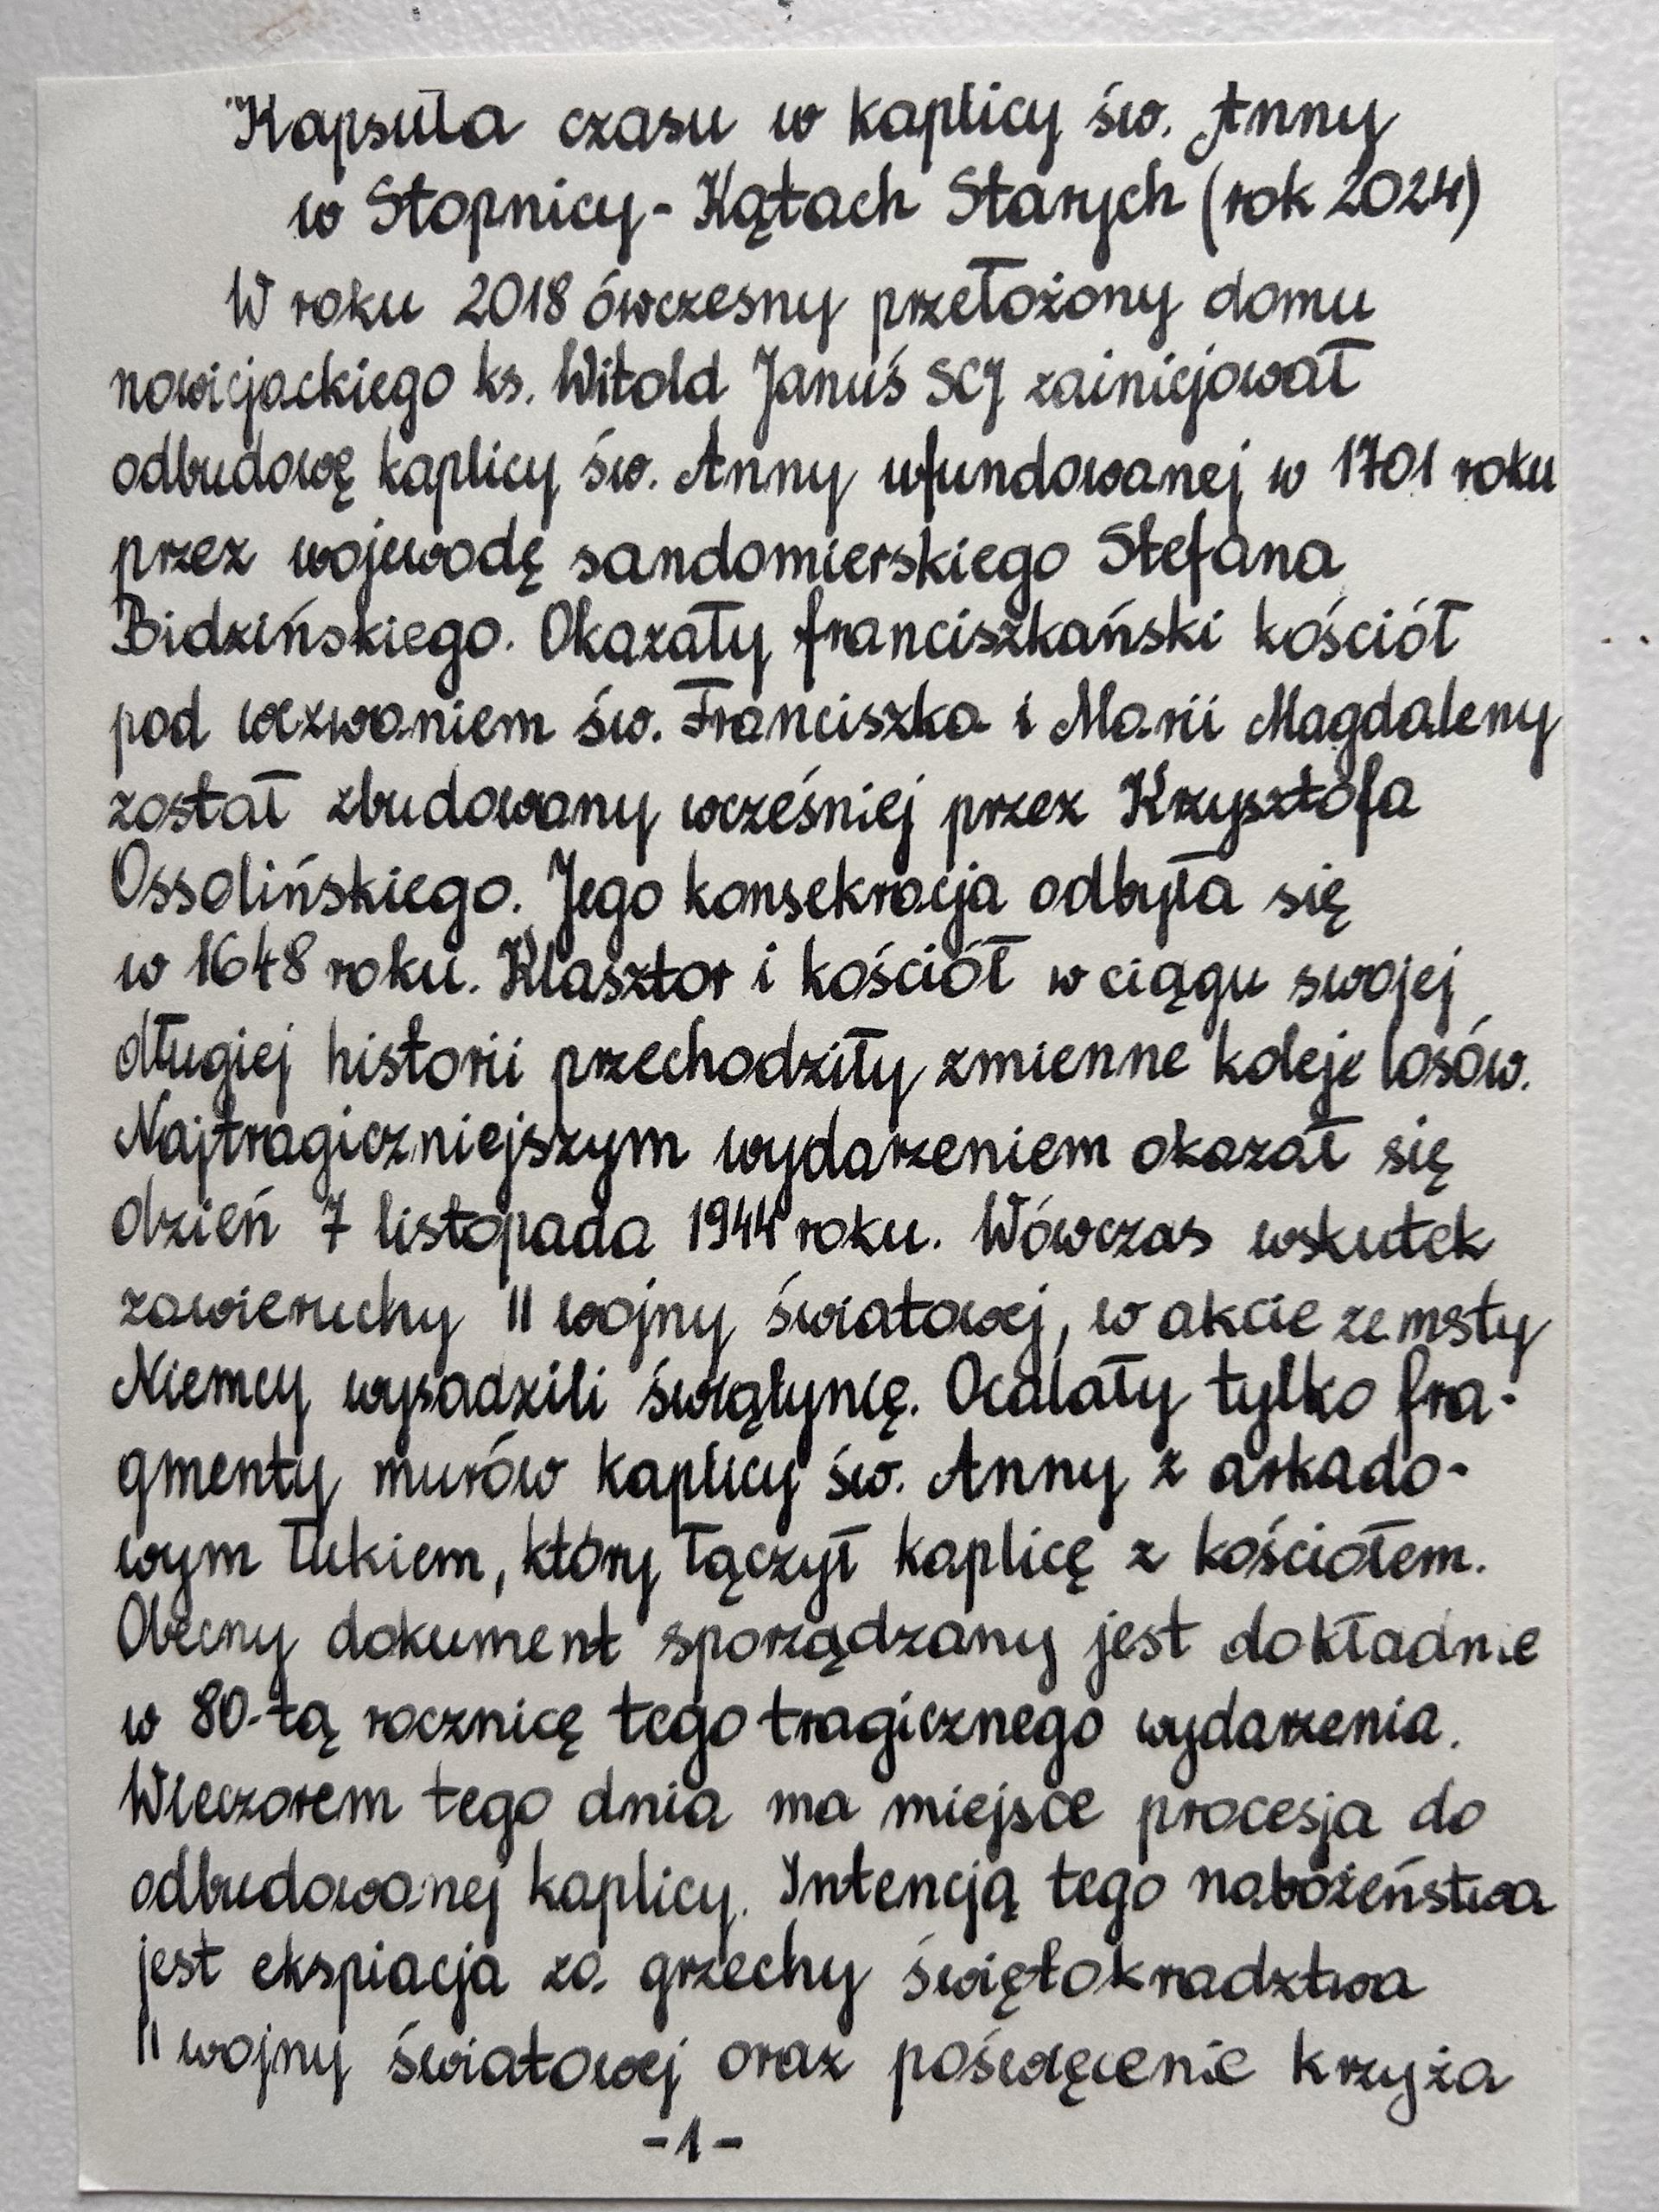 Kapsuła czasu w kaplicy św. Anny
w Stopnicy - Kątach Starych (rok 2024)
W roku 2018 ówczesny przełożony domu
nowicjackiego ks. Witold Januś SCJ zainicjował
odbudowę kaplicy św. Anny ufundowanej w 1701 roku
przez wojewodę sandomierskiego Stefana
Bidzińskiego. Okazały franciszkański kościół
pod wezwaniem św. Franciszka i Marii Magdaleny
został zbudowany wcześniej przez Krzysztofa
Ossolińskiego. Jego konsekracja odbyła się
w 1648 roku. Klasztor i kościół w ciągu swojej
długiej historii przechodziły zmienne koleje losów.
Najtragiczniejszym wydarzeniem okazał się
dzień 7 listopada 1944 roku. Wówczas wskutek
zawieruchy II wojny światowej, w akcie zemsty
Niemcy wysadzili świątynię. Ocalały tylko fra-
gmenty murów kaplicy św. Anny z arkado-
wym łukiem, który łączył kaplicę z kościołem.
Obecny dokument sporządzany jest dokładnie
w 80-tą rocznicę tego tragicznego wydarzenia.
Wieczorem tego dnia ma miejsce procesja do
odbudowanej kaplicy. Intencją tego nabożeństwa
jest ekspiacja za grzechy świętokradztwa
II wojny światowej oraz poświęcenie krzyża
-1-